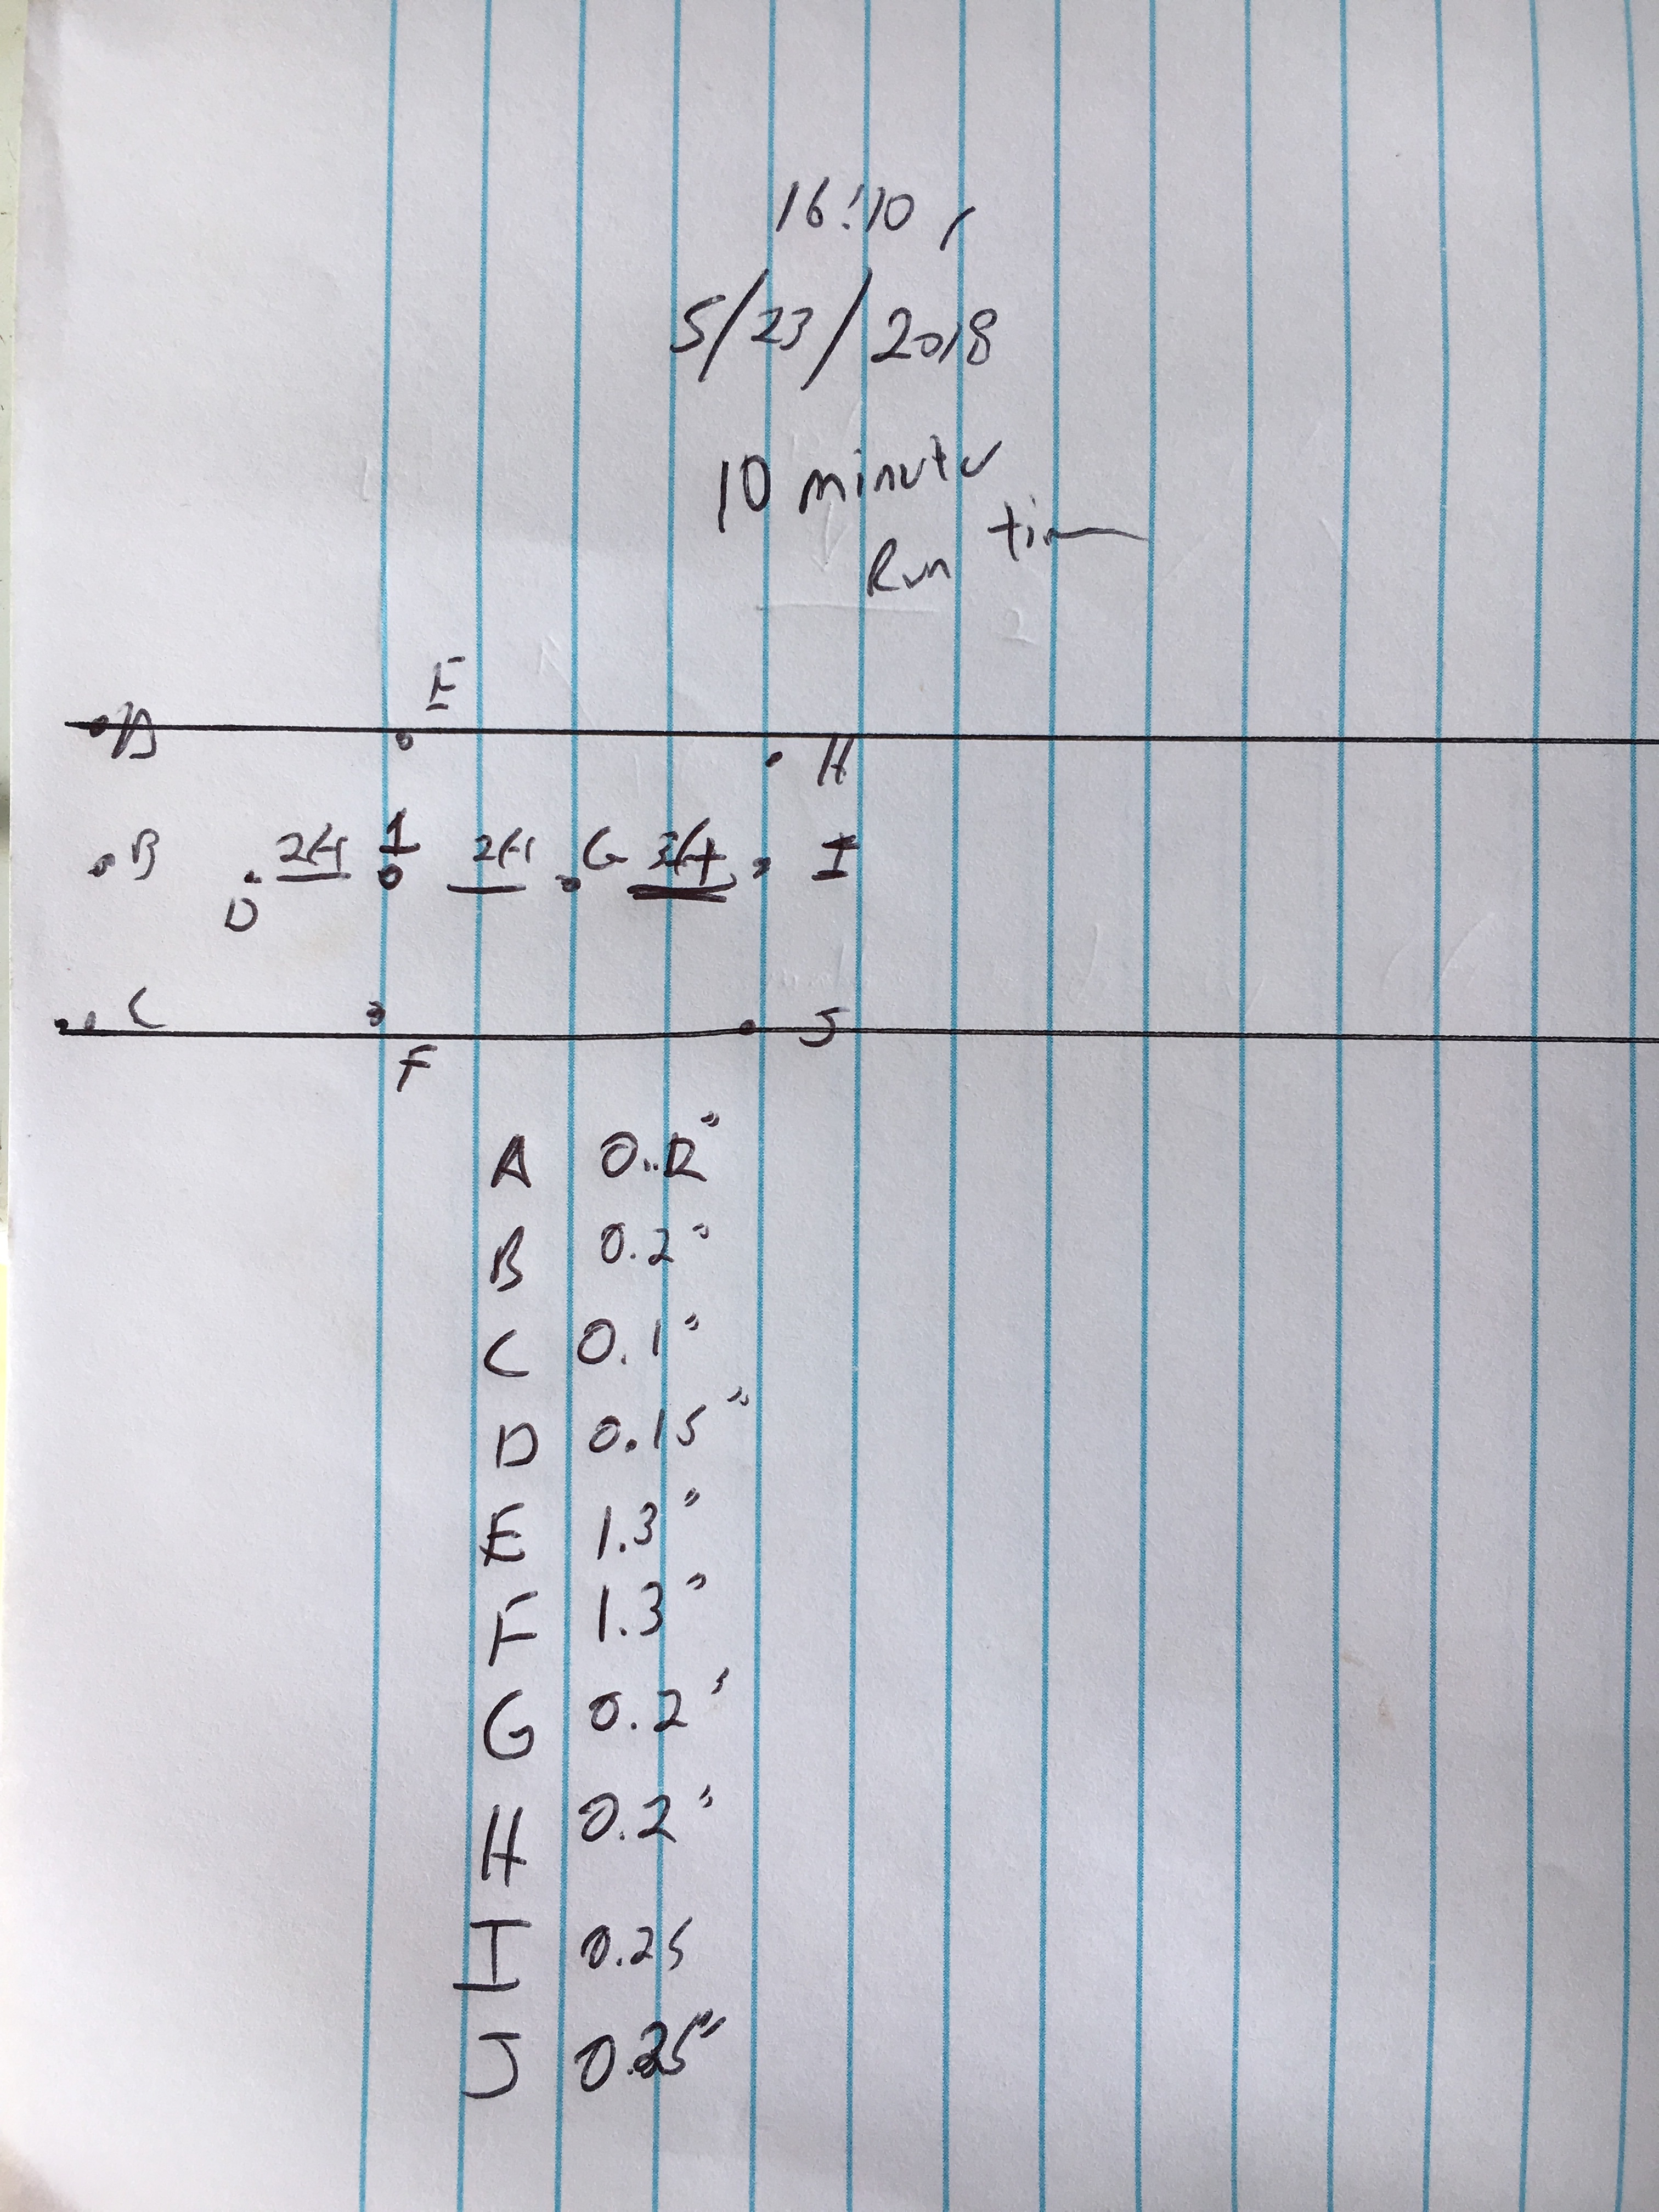 16:10,
5/23/2018
10 minute
Run time
E
A
H
B
2ft
1
2ft
G
3ft
I
D
C
J
F
A 0.12"
B 0.2"
C 0.1"
D 0.15"
E 1.3"
F 1.3"
G 0.2"
H 0.2"
I 0.25
J 0.25"